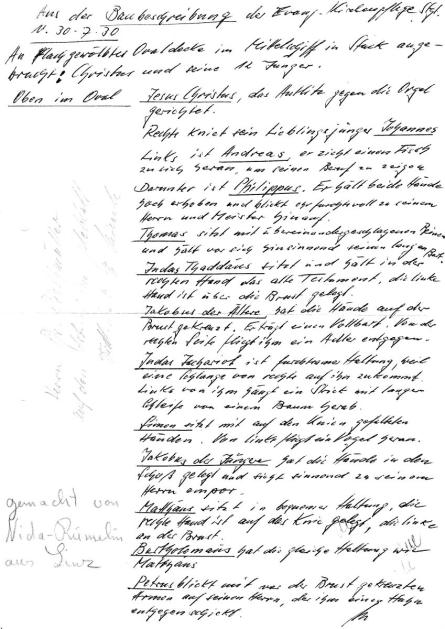 Aus der Baubeschreibung der Evang. Kirchenpflege
v. 30.7.30
An flachgewölbter Ovaldecke im Mittelschiff in Stuck ange-
bracht: Christus und seine 12 Jünger.
Oben im Oval
Jesus Christus, das Antlitz gegen die Orgel
gerichtet.
Rechts kniet sein Lieblingsjünger Johannes
Links ist Andreas, er zieht einen Fisch
zu sich heran, um seinen Beruf zu zeigen
Darunter ist Philippus. Er hält beide Hände
hoch erhoben und blickt ehrfurchtsvoll zu seinem
Herrn und Meister hinauf.
Thomas sitzt mit übereinandergeschlagenen Beinen
und hält vor sich hinsinnend seinen langen Bart.
Judas Thaddäus sitzt und hält in der
rechten Hand das alte Testament, die linke
Hand ist über die Brust gelegt.
Jakobus der Ältere hat die Hände auf der
Brust gekreuzt. Er trägt einen Vollbart. Von der
rechten Seite fliegt ihm ein Adler entgegen.
Judas Ischariot ist in furchtsamer Haltung, weil
eine Schlange von rechts auf ihn zukommt.
Links von ihm hängt ein Strick mit langer
Schleife von einem Baum herab.
Simon sitzt mit auf den Knien gefalteten
Händen. Von links fliegt ein Vogel heran.
Jakobus der Jünger hat die Hände in den
Schoß gelegt und sieht sinnend zu seinem
Herrn empor.
Matthäus sitzt in bequemer Haltung, die
rechte Hand ist auf das Knie gelegt, die linke
an der Brust.
Bartholomäus hat die gleiche Haltung wie
Matthäus
Petrus blickt mit vor der Brust gekreuzten
Armen auf seinen Herrn, der ihm einen Hahn
entgegenschickt.
gemacht von
Nida-Rümelin
aus Linz